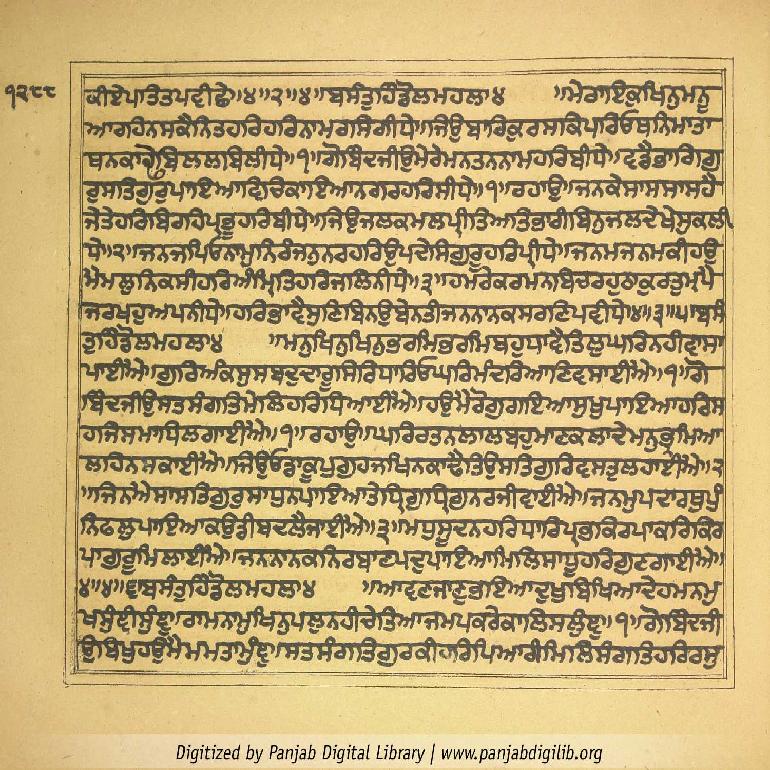 ੧੨੮੮
ਕੀਏਪਤਿਤਪਵੀਛੇ॥੪॥੨॥੪॥ਬਸੰਤੁਹਿੰਡੋਲਮਹਲਾ੪ ॥ਮੇਰਾਇਕੁਖਿਨੁਮਨੂ
ਆਰਹਿਨਸਕੈਨਿਤਹਰਿਹਰਿਨਾਮਰਸਿਗੀਧੇ॥ਜਿਉਬਾਰਿਕੁਰਸਕਿਪਰਿਓਥਨਿਮਾਤਾ
ਥਨਕਾਢੇਬਿਲਲਬਿਲੀਧੇ॥੧॥ਗੋਬਿੰਦਜੀਉਮੇਰੇਮਨਤਨਨਾਮਹਰਿਬੀਧੇ॥ਵਡੈਭਾਗਿਗੁ
ਰੁਸਤਿਗੁਰੁਪਾਇਆਵਿਚਿਕਾਇਆਨਗਰਹਰਿਸੀਧੇ॥੧॥ਰਹਾਉ॥ਜਨਕੇਸਾਸਸਾਸਹੈ
ਜੇਤੇਹਰਿਬਿਰਹਿਪ੍ਰਭੂਹਰਿਬੀਧੇ॥ਜਿਉਜਲਕਮਲਪ੍ਰੀਤਿਅਤਿਭਾਰੀਬਿਨੁਜਲਦੇਖੇਸੁਕਲੀ
ਧੇ॥੨॥ਜਨਜਪਿਓਨਾਮੁਨਿਰੰਜਨੁਨਰਹਰਿਉਪਦੇਸਿਗੁਰੂਹਰਿਪ੍ਰੀਧੇ॥ਜਨਮਜਨਮਕੀਹਉ
ਮੈਮਲੁਨਿਕਸੀਹਰਿਅੰਮ੍ਰਿਤਿਹਰਿਜਲਿਨੀਧੇ॥੩॥ਹਮਰੇਕਰਮਨਬਿਚਰਹੁਠਾਕੁਰਤੁਮ੍ਹਪੈ
ਜਰਖਹੁਅਪਨੀਧੇ॥ਹਰਿਭਾਵੈਸੁਣਿਬਿਨਉਬੇਨਤੀਜਨਨਾਨਕਸਰਣਿਪਵੀਧੇ॥੪॥੩॥੫॥ਬਸੰ
ਤੁਹਿੰਡੋਲਮਹਲਾ੪ ॥ਮਨੁਖਿਨੁਖਿਨੁਭਰਮਿਭਰਮਿਬਹੁਧਾਵੈਤਿਲੁਘਰਿਨਹੀਵਾਸਾ
ਪਾਈਐ॥ਗੁਰਿਅੰਕਸੁਸਬਦੁਦਾਰੂਸਿਰਿਧਾਰਿਓਘਰਿਮੰਦਰਿਆਣਿਵਸਾਈਐ॥੧॥ਗੋ
ਬਿੰਦਜੀਉਸਤਸੰਗਤਿਮੇਲਿਹਰਿਧਿਆਈਐ॥ਹਉਮੈਰੋਗੁਗਇਆਸੁਖੁਪਾਇਆਹਰਿਸ
ਹਜਿਸਮਾਧਿਲਗਾਈਐ॥੧॥ਰਹਾਉ॥ਘਰਿਰਤਨਲਾਲਬਹੁਮਾਣਕਲਾਦੇਮਨੁਭ੍ਰਮਿਆ
ਲਹਿਨਸਕਾਈਐ॥ਜਿਉਓਡਾਕੂਪੁਗੁਹਜਖਿਨਕਾਢੈਤਿਉਸਤਿਗੁਰਿਵਸਤੁਲਹਾਈਐ॥੨
॥ਜਿਨਐਸਾਸਤਿਗੁਰੁਸਾਧੁਨਪਾਇਆਤੇਧ੍ਰਿਗੁਧ੍ਰਿਗੁਨਰਜੀਵਾਈਐ॥ਜਨਮੁਪਦਾਰਥੁਪੁੰ
ਨਿਫਲੁਪਾਇਆਕਉਡੀਬਦਲੈਜਾਈਐ॥੩॥ਮਧੁਸੂਦਨਹਰਿਧਾਰਿਪ੍ਰਭਕਿਰਪਾਕਰਿਕਿਰ
ਪਾਗੁਰੂਮਿਲਾਈਐ॥ਜਨਨਾਨਕਨਿਰਬਾਣਪਦੁਪਾਇਆਮਿਲਿਸਾਧੂਹਰਿਗੁਣਗਾਈਐ॥
੪॥੪॥੬॥ਬਸੰਤੁਹਿੰਡੋਲਮਹਲਾ੪ ॥ਆਵਣਜਾਣੁਭਇਆਦੁਖੁਬਿਖਿਆਦੇਹਮਨਮੁ
ਖਸੁੰਞੀਸੁੰਞੁ॥ਰਾਮਨਾਮੁਖਿਨੁਪਲੁਨਹੀਚੇਤਿਆਜਮਪਕਰੇਕਾਲਿਸਲੁੰਞੁ॥੧॥ਗੋਬਿੰਦਜੀ
ਉਬਿਖੁਹਉਮੈਮਮਤਾਮੁੰਞੁ॥ਸਤਸੰਗਤਿਗੁਰਕੀਹਰਿਪਿਆਰੀਮਿਲਿਸੰਗਤਿਹਰਿਰਸੁ
Digitized by Panjab Digital Library | www.panjabdigilib.org